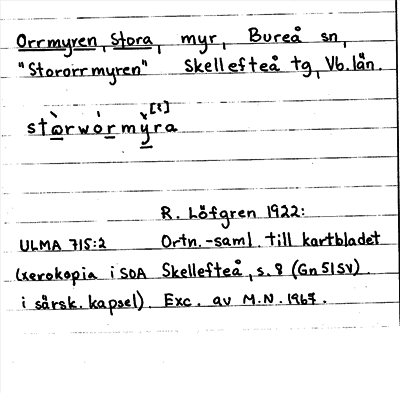 Orrmyren, Stora, myr, Bureå sn,
"Stororrmyren" Skellefteå tg, Vb. län.
[?]
stòrwórmy̌ra
R. Löfgren 1922:
ULMA 715:2 Ortn.-saml. till kartbladet
(xerokopia i SOA Skellefteå, s. 8 (Gn 51 SV)
i särsk. kapsel). Exc. av M.N. 1967.